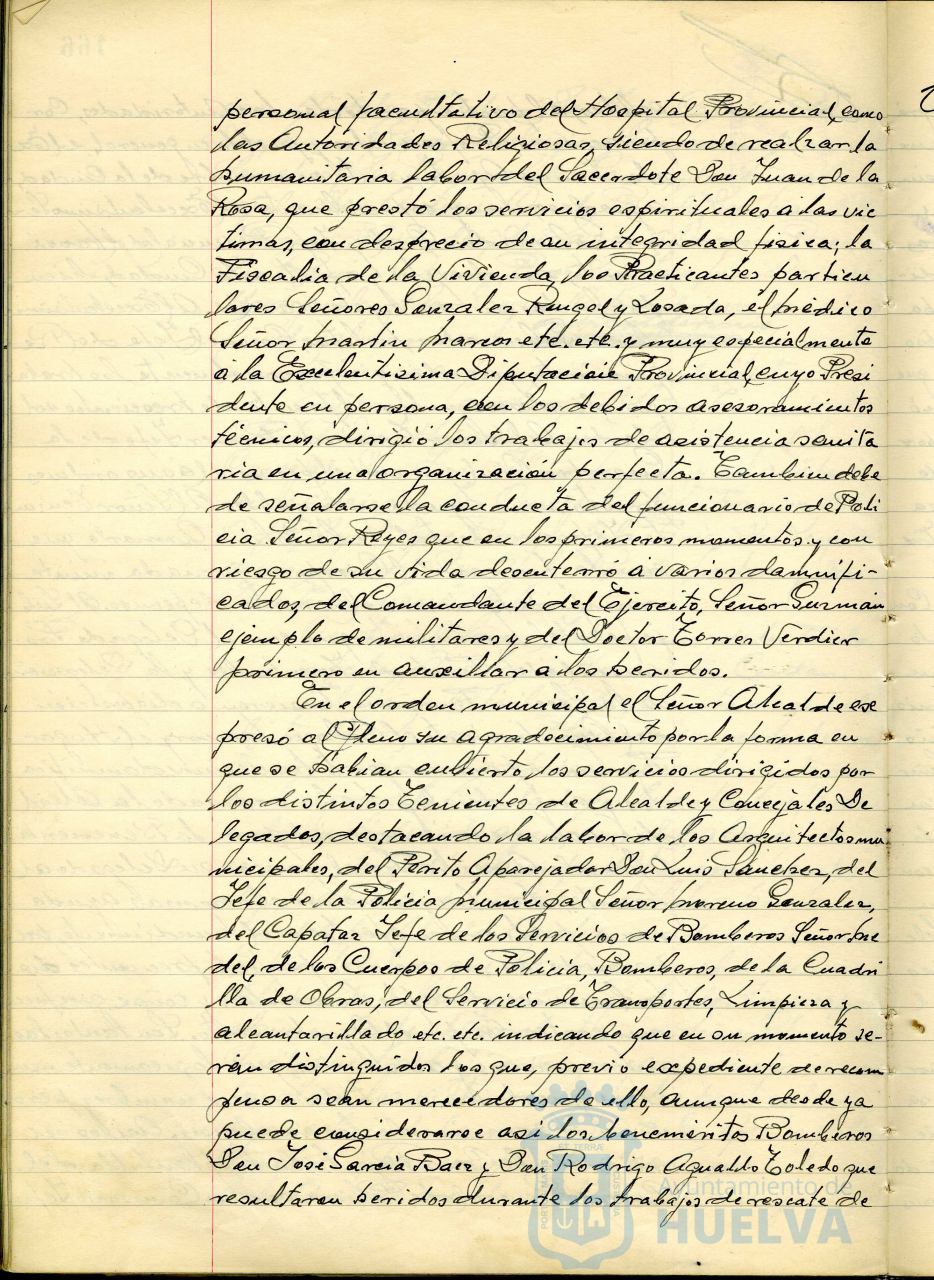 personal facultativo del Hospital Provincial, como
las Autoridades Religiosas, siendo de realzar la
humanitaria labor del Sacerdote Don Juan de la
Rosa, que prestó los servicios espirituales a las vic
timas, con desprecio de su integridad fisica; la
Fiscalia de la Vivienda, los Practicantes particu
lares Señores Gonzalez Rengel y Losada, el médico
Señor Martin Marcos etc. etc. y muy especialmente
á la Excelentisima Diputación Provincial, cuyo Presi
dente en persona, con los debidos asesoramientos
técnicos, dirigió los trabajos de asistencia sanita
ria en una organización perfecta. Tambien debe
de señalarse la conducta del funcionario de Poli
cia Señor Reyes que en los primeros momentos y con
riesgo de su vida desenterró a varios damnifi-
cados, del Comandante del Ejercito, Señor Guzmán
ejemplo de militares y del Doctor Torres Verdier
primero en auxiliar a los heridos.
En el orden municipal el Señor Alcalde ex
presó al Pleno su agradecimiento por la forma en
que se habian cubierto los servicios dirigidos por
los distintos Tenientes de Alcalde y Concejales De
legados, destacando la labor de los Arquitectos mu
nicipales, del Perito Aparejador Don Luis Sanchez, del
Jefe de la Policia Municipal Señor Moreno Gonzalez,
del Capataz Jefe de los Servicios de Bomberos Señor
del, de los Cuerpos de Policia, Bomberos, de la Cuadri
lla de Obras, del Servicio de Transportes, Limpieza y
alcantarillado etc. etc. indicando que en su momento se-
rán distinguidos los que, previo expediente de recom
pensa sean merecedores de ello, aunque desde ya
puede considerarse asi los beneméritos Bomberos
Don José Garcia Baez y Don Rodrigo Agualdo Toledo que
resultaron heridos durante los trabajos de rescate de
Ayuntamiento de
HUELVA